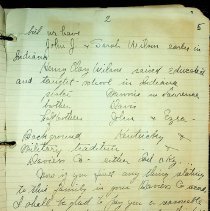 2
5
but we have
John J & Sarah Wilson early in
Indiana
Henry Clay Wilson raised Educated
and taught school in Indiana
sister Nannie in Lawrence
brother Davis
half brothers John & Ezra -
Background Kentucky
Military tradition
Daviess Co - either Ind or Ky.
Now if you find any thing relating
to this family in your Daviess Co records
I shall be glad to pay you a reasonable